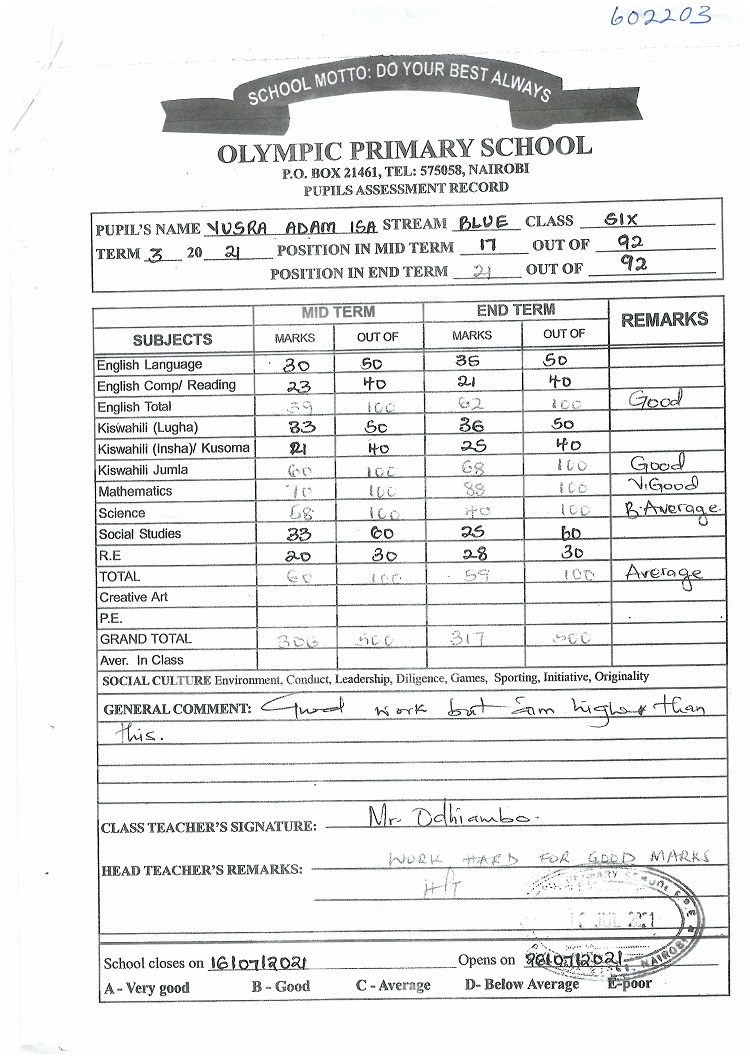 602203
SCHOOL MOTTO: DO YOUR BEST ALWAYS
OLYMPIC PRIMARY SCHOOL
P.O. BOX 21461, TEL: 575058, NAIROBI
PUPILS ASSESSMENT RECORD
PUPIL'S NAME YUSRA ADAM ISA STREAM BLUE CLASS SIX
TERM 3 20 21 POSITION IN MID TERM 17 OUT OF 92
POSITION IN END TERM 21 OUT OF 92
MID TERM END TERM REMARKS
SUBJECTS MARKS OUT OF MARKS OUT OF
English Language 30 50 36 50
English Comp/ Reading 23 40 21 40
English Total 59 100 62 100 Good
Kiswahili (Lugha) 33 50 36 50
Kiswahili (Insha)/ Kusoma 21 40 25 40
Kiswahili Jumla 60 100 68 100 Good
Mathematics 70 100 88 100 V.Good
Science 68 100 40 100 B.Average
Social Studies 33 60 25 60
R.E 20 30 28 30
TOTAL 60 100 59 100 Average
Creative Art
P.E.
GRAND TOTAL 306 500 317 500
Aver. In Class
SOCIAL CULTURE Environment, Conduct, Leadership, Diligence, Games, Sporting, Initiative, Originality
GENERAL COMMENT: Good work but aim higher than
this.
CLASS TEACHER'S SIGNATURE: Mr. Odhiambo.
HEAD TEACHER'S REMARKS: WORK HARD FOR GOOD MARKS
H/T
PRIMARY SCHOOL
JUL 2021
NAIROBI
School closes on 16/07/2021 Opens on /07/2021
A - Very good B - Good C - Average D- Below Average E-poor